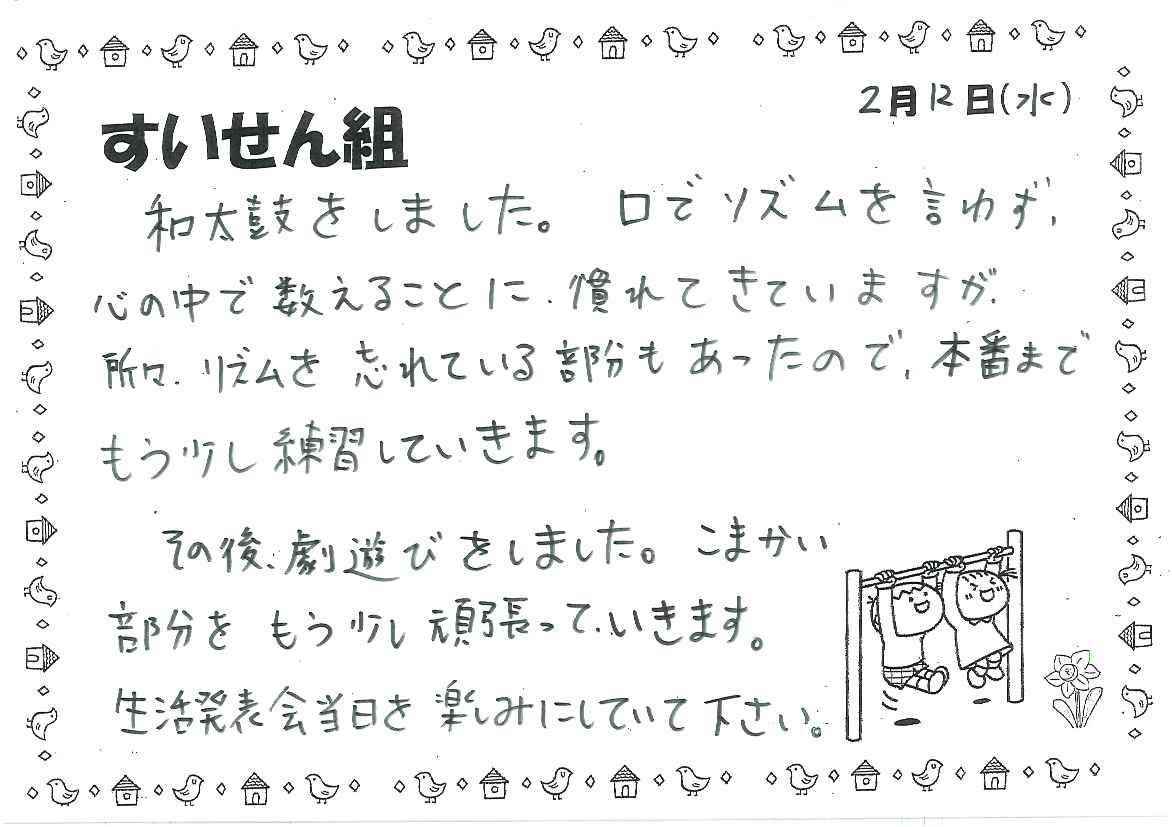 2月12日(水)
すいせん組
和太鼓をしました。 口でリズムを言わず、
心の中で数えることに、慣れてきていますが、
所々、リズムを忘れている部分もあったので、本番まで
もう少し練習していきます。
その後、劇遊びをしました。こまかい
部分をもう少し頑張って、いきます。
生活発表会当日を楽しみにしていて下さい。